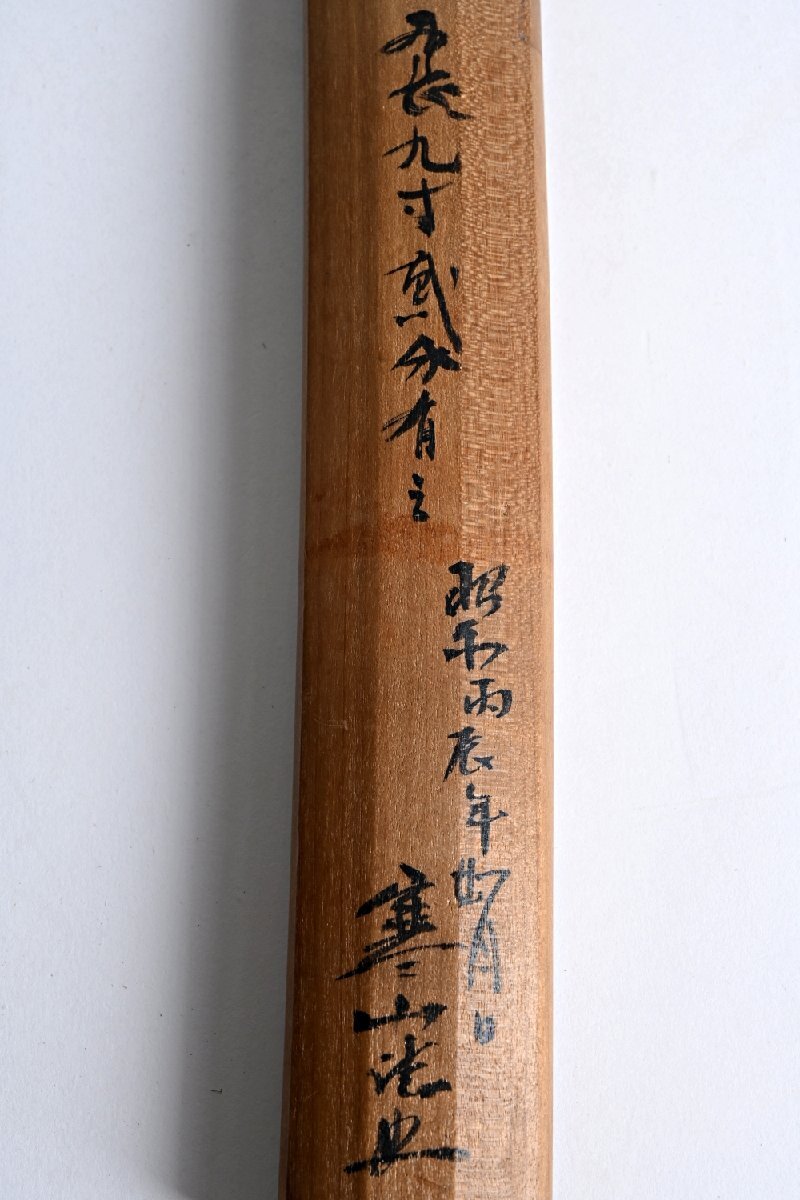 刃長九寸貳分有之
昭和丙辰年月日
寒山誌